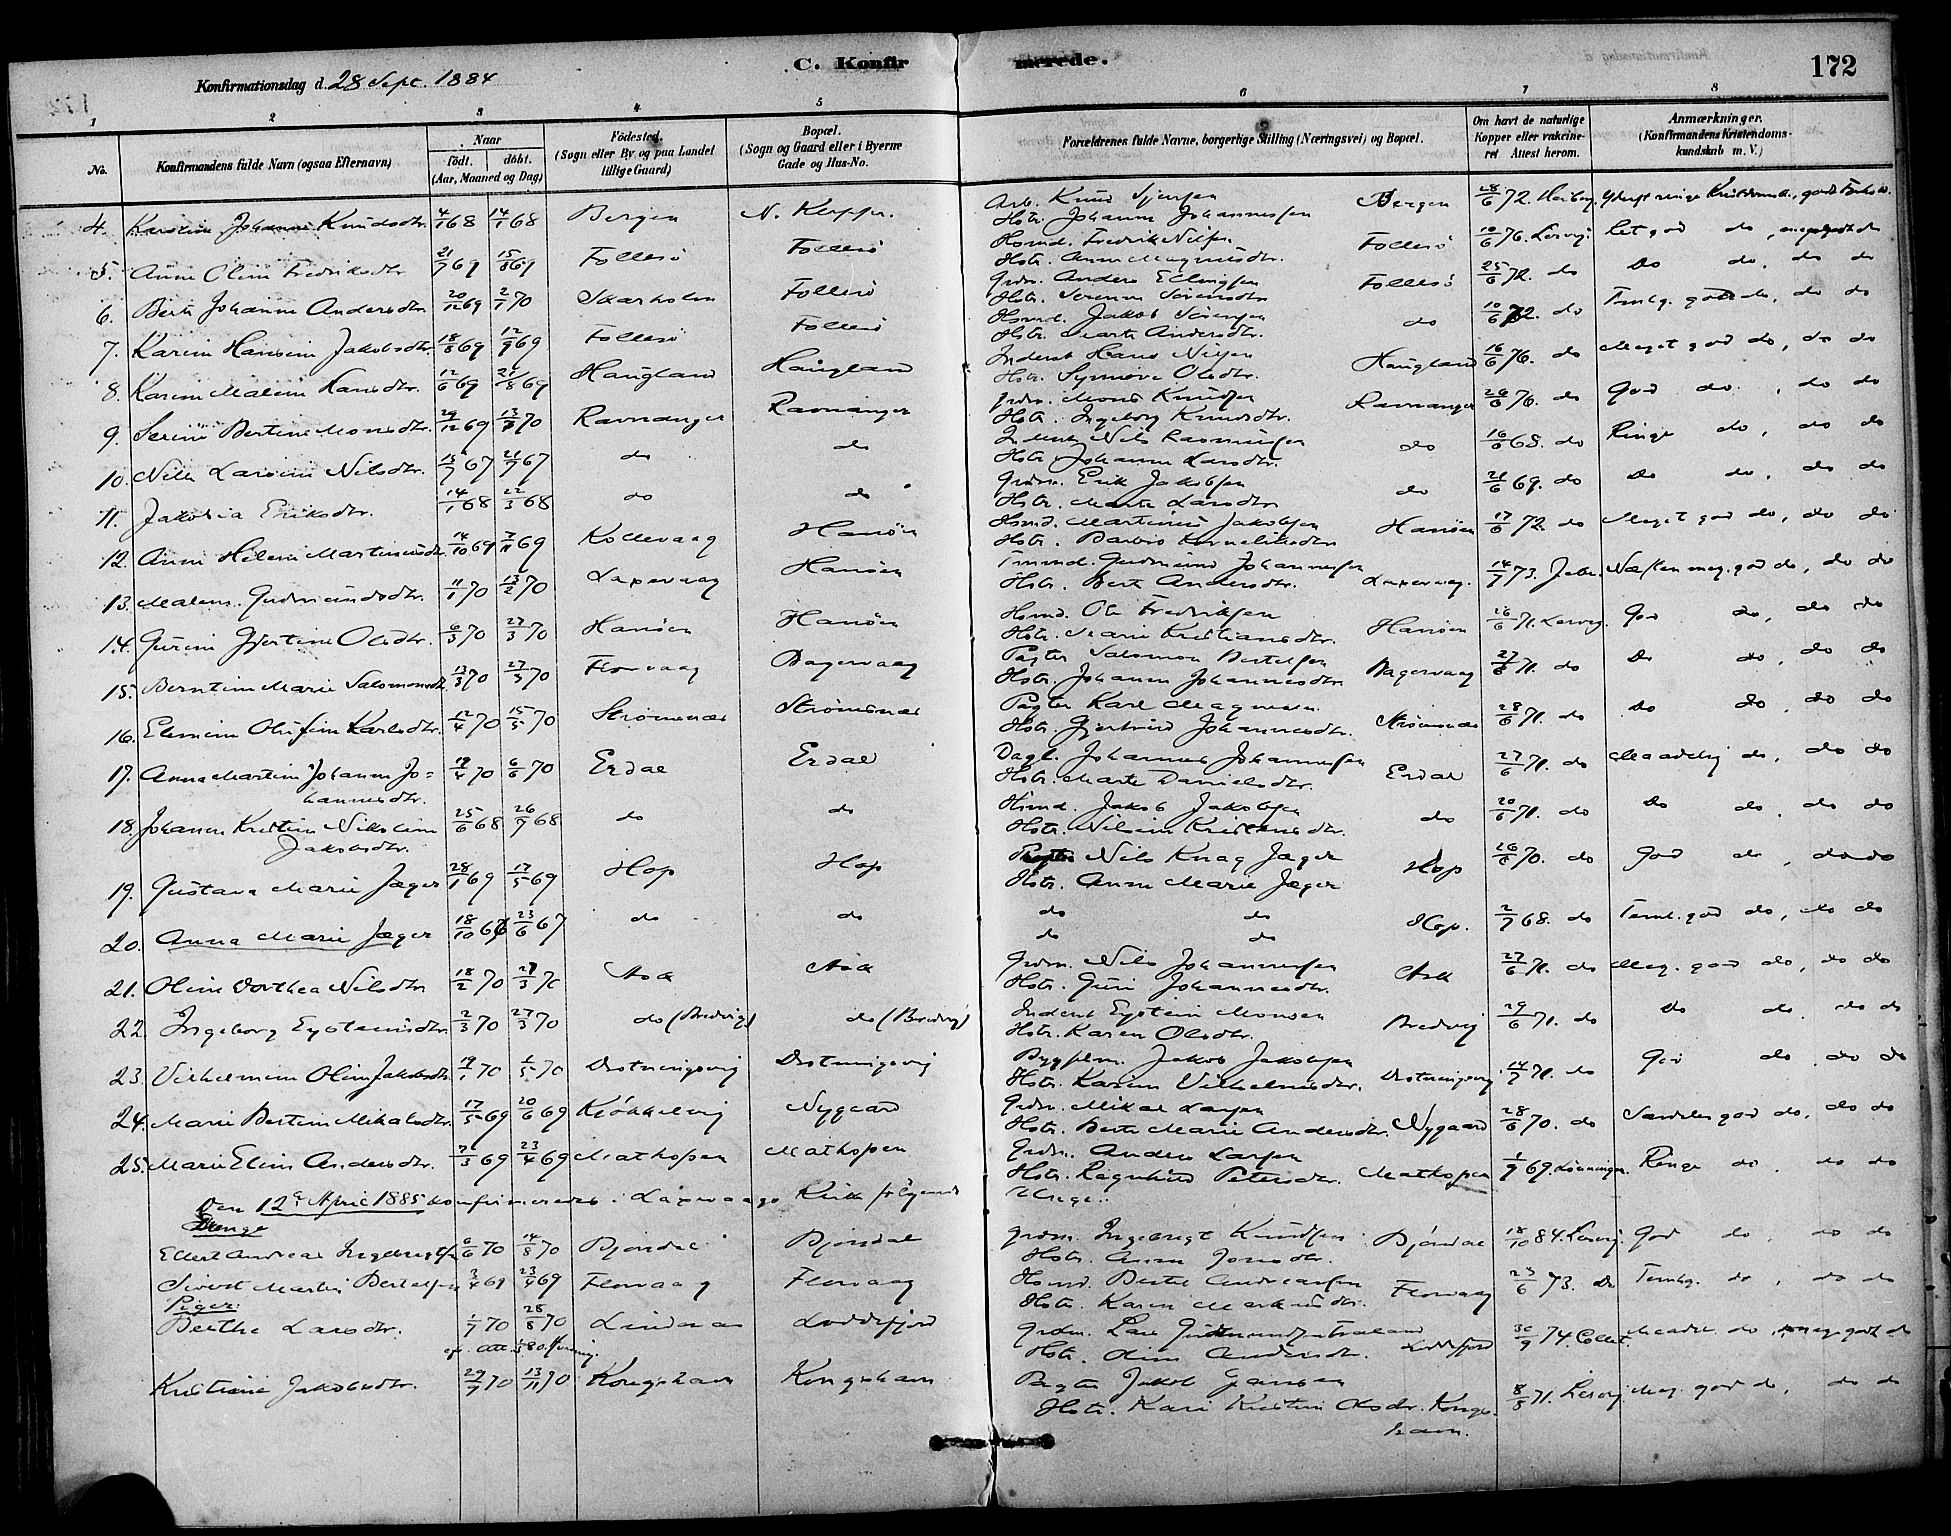 Konfirmationsdag d. 28 Sept. 1884
C. Konfirmerede.
172
1 2 3 4 5 6 7 8
No.
Konfirmandens fulde Navn (ogsaa Efternavn)
Naar
født. døbt.
(Aar, Maaned og Dag)
Fødested.
(Sogn eller By og paa Landet
tillige Gaard)
Bopæl.
(Sogn og Gaard eller i Byerne
Gade og Hus-No.
Forældrenes fulde Navne, borgerlige Stilling (Næringsvei) og Bopæl.
Om havt de naturlige
Kopper eller vakcine-
ret Attest herom.
Anmærkninger.
(Konfirmandens Kristendoms-
kundskab m. V.)
4. Karoline Johanne Knudsdtr. 4/1 68 14/1 68 Bergen Arb. Knud Bergen 28/6 72.
Hstr. Johanne Johannessen
5. Anne Oline Fredriksdtr. 21/7 69 15/8 69 Follesø Follesø Hsmd. Fredrik Nilsen Follesø 10/6 76. Lervig
Hstr. Anne Magnusdtr.
6. Berte Johanne Andersdtr. 20/12 69 2/1 70 Skarholm Follesø Grdm. Anders Ellingsen Follesø 25/6 72. do do do, do do
Hstr. Serenne Sørensdtr.
7. Karine Hansine Jakobsdtr. 18/8 69 12/9 69 Follesø Follesø Hsmd. Jakob Sørensen do 10/6 72. do Temlig godt do, do do
Hstr. Marte Andersdtr.
8. Karen Malene Hansdtr. 12/6 69 Haugland Haugland Inderst Hans Nilsen Haugland 16/6 76. do Meget god do, do do
Hstr. Synnøve Olsdtr.
9. Serine Bertine Monsdtr. 29/12 69 Ravnanger Ravnanger Grdm. Mons Knudsen Ravnanger 26/6 76. do God do, do do
Hstr. Ingeborg Knudsdtr.
10. Nille Larsine Nilsdtr. 15/7 67 21/7 67 do do Inderst Nils Rasmussen do 16/6 68. do Ringe do, do do
Hstr. Johanne Larsdtr.
11. Jakobia Eriksdtr. 14/1 68 22/3 68 do do Grdm. Erik Jakobsen do 21/6 69. do do do, do do
Hstr. Marte Larsdtr
12. Anne Helene Martinusdtr. 14/10 69 7/11 69 Kollevaag Hanøen Hsmd. Martinus Jakobsen Hanøen 17/6 72 do Meget god do, do do
Hstr. Barbro Korneliusdtr
13. Malene Gudmundsdtr. 11/1 70 13/2 70 Laxevaag Hanøen Gudmund Johannessen Laxevaag. 14/7 73. do, do do
Hstr. Berte Andersdtr.
14. Gurine Gjertine Olsdtr. 6/3 70 27/3 70 Hanøen Hanøen Hsmd. Ole Fredriksen Hanøen 26/6 71. Lervig. God do, do do
Hstr. Marie Kristiansdtr.
15. Berntine Marie Salomonsdtr. 13/3 70 27/3 70 Florvaag Bagervaag Pagter Salomon Bertelsen Bagervaag 27/6 71. do do do, do do
Hstr. Johanne Johannesdtr.
16. Olufine Karlsdtr. 12/4 70 15/5 70 Strømsnes Strømsnes Pagter Karl Magnesen Strømsnes 28/6 71. do do do, do do
Hstr. Gjertrud Johannesdtr.
17. Anna Martine Johanne Jo- 19/4 70 6/6 70 Erdal Erdal Dagl. Johannes Johannessen Erdal 27/6 71. do Maadelig do, do do
hannesdtr. Hstr. Marte Danielsdtr.
18. Johanne Kristine Nikoline 25/6 68 26/7 68 do do Hsmd. Jakob Jakobsen do 20/6 71. do do do do do
Jakobsdtr. Hstr. Nilsine Kristensdtr.
19. Gustava Marie Jæger 28/1 69 17/5 69 Hop Hop Nils Knag Jæger Hop 26/6 70. do God do, do do
Hstr. Anne Marie Jæger
20. Anna Marie Jæger 18/10 66 23/6 67 do do do do Hop. 2/7 68. do Teml. god do, do do
do do
21. Oline Dorthea Nilsdtr 18/2 70 27/3 70 Ask Ask Grdm. Nils Johannessen Ask 27/6 71. do Meg. god do, do do
Hstr. Guri Johannesdtr.
22. Ingeborg Eysteinsdtr. 2/3 70 27/3 70 do (Bredvig) do (Bredvig) Inderst Eystein Monsen Bredvig 29/6 71. do do do. do do
Hstr. Karen Olsdtr.
23. Vilhelmine Oline Jakobsdtr. 19/1 70 1/5 70 Drotningsvig Drotningsvig Bygslm. Jakob Jakobsen Drotningsvig 14/7 71. do God do, do do
Hstr. Karen Vilhelmsdtr.
24. Marie Bertine Mikalsdtr. 17/5 69 20/6 69 Kjøkkelvig Nygaard Grdm. Mikal Larsen Nygaard 28/6 70. do Særdeles god do, do do
Hstr. Berte Marie Andersdtr.
25. Marie Eline Andersdtr. 69 23/4 69 Mathopen Mathopen Grdm. Anders Larsen Mathopen 1/7 69. Lønningen. Ringe do, do do
Hstr. Ragnhild Petersdtr.
Den 12te April 1885 konfirmeredes i Laxevaags Kirke følgende Unge:
Drenge
Ellert Andreas Ingebrigtsen 6/6 70 14/8 70 Bjøndal Bjøndal Grdm. Ingebrigt Knudsen Bjøndal 18/10 84. Lervig. God do, do do
Hstr. Anne Jonsdtr.
Sivert Martin Bertelsen 3/4 69 23/4 69 Florvaag Florvaag Hsmd. Bertel Andreassen Florvaag 23/6 73. Do Temlig. do, do do
Hstr. Karen Markusdtr.
Piger:
Berthe Larsdtr. 1/7 70 28/8 70 Lindaas Loddefjord Grdm. Lars Gudmundsen Loddefjord 30/9 74.
Hstr. Oline Andersdtr.
Kristine Jakobsdtr. 29/7 70 13/11 70 Kongshavn Kongshavn Pagter Jakob Jansen 8/5 71. Lervig. Meg. god do, do do
Hstr. Kari Kristine Olsdtr. Kongs-
havn.